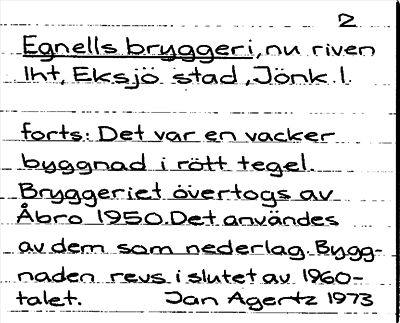 2
Egnells bryggeri, nu riven
lht, Eksjö stad, Jönk. l.
forts: Det var en vacker
byggnad i rött tegel.
Bryggeriet övertogs av
Åbro 1950. Det användes
av dem som nederlag. Bygg-
naden revs i slutet av 1960-
talet. Jan Agertz 1973